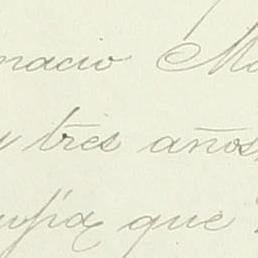 nacio Ma
y tres años
que